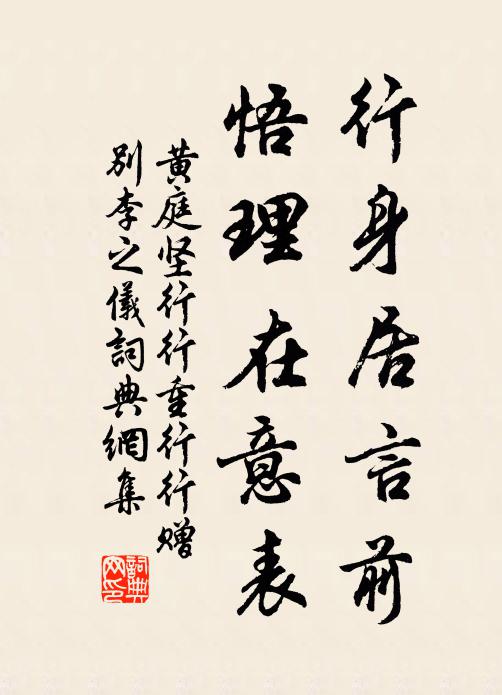 行身居言前
悟理在意表
黄庭坚行行重行行赠
别李之儀詞典網集
詞典网印